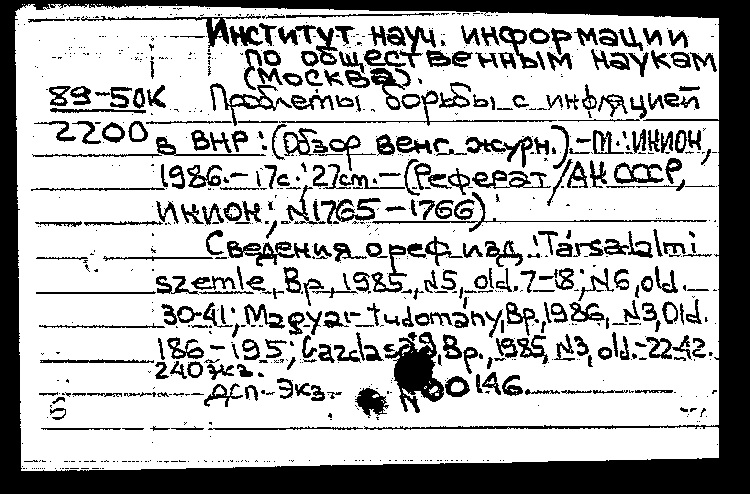 Институт науч. информации
по общественным наукам
(Москва).
89-50К Проблемы борьбы с инфляцией
2200 в ВНР: (Обзор венг. журн.).-М.: ИНИОН,
1986.-17с.; 27cm.-(Реферат/АН СССР,
ИНИОН; N1765-1766).
Сведения о реф. изд.: Társadalmi
szemle, Bp., 1985, N5, old. 7-18; N6, old.
30-41; Magyar tudomány, Bp., 1986, N3, Old.
186-195; Gazdaság, Bp., 1985, N3, old.-22-42.
240 экз.
ДСП. Экз. N00146.
б